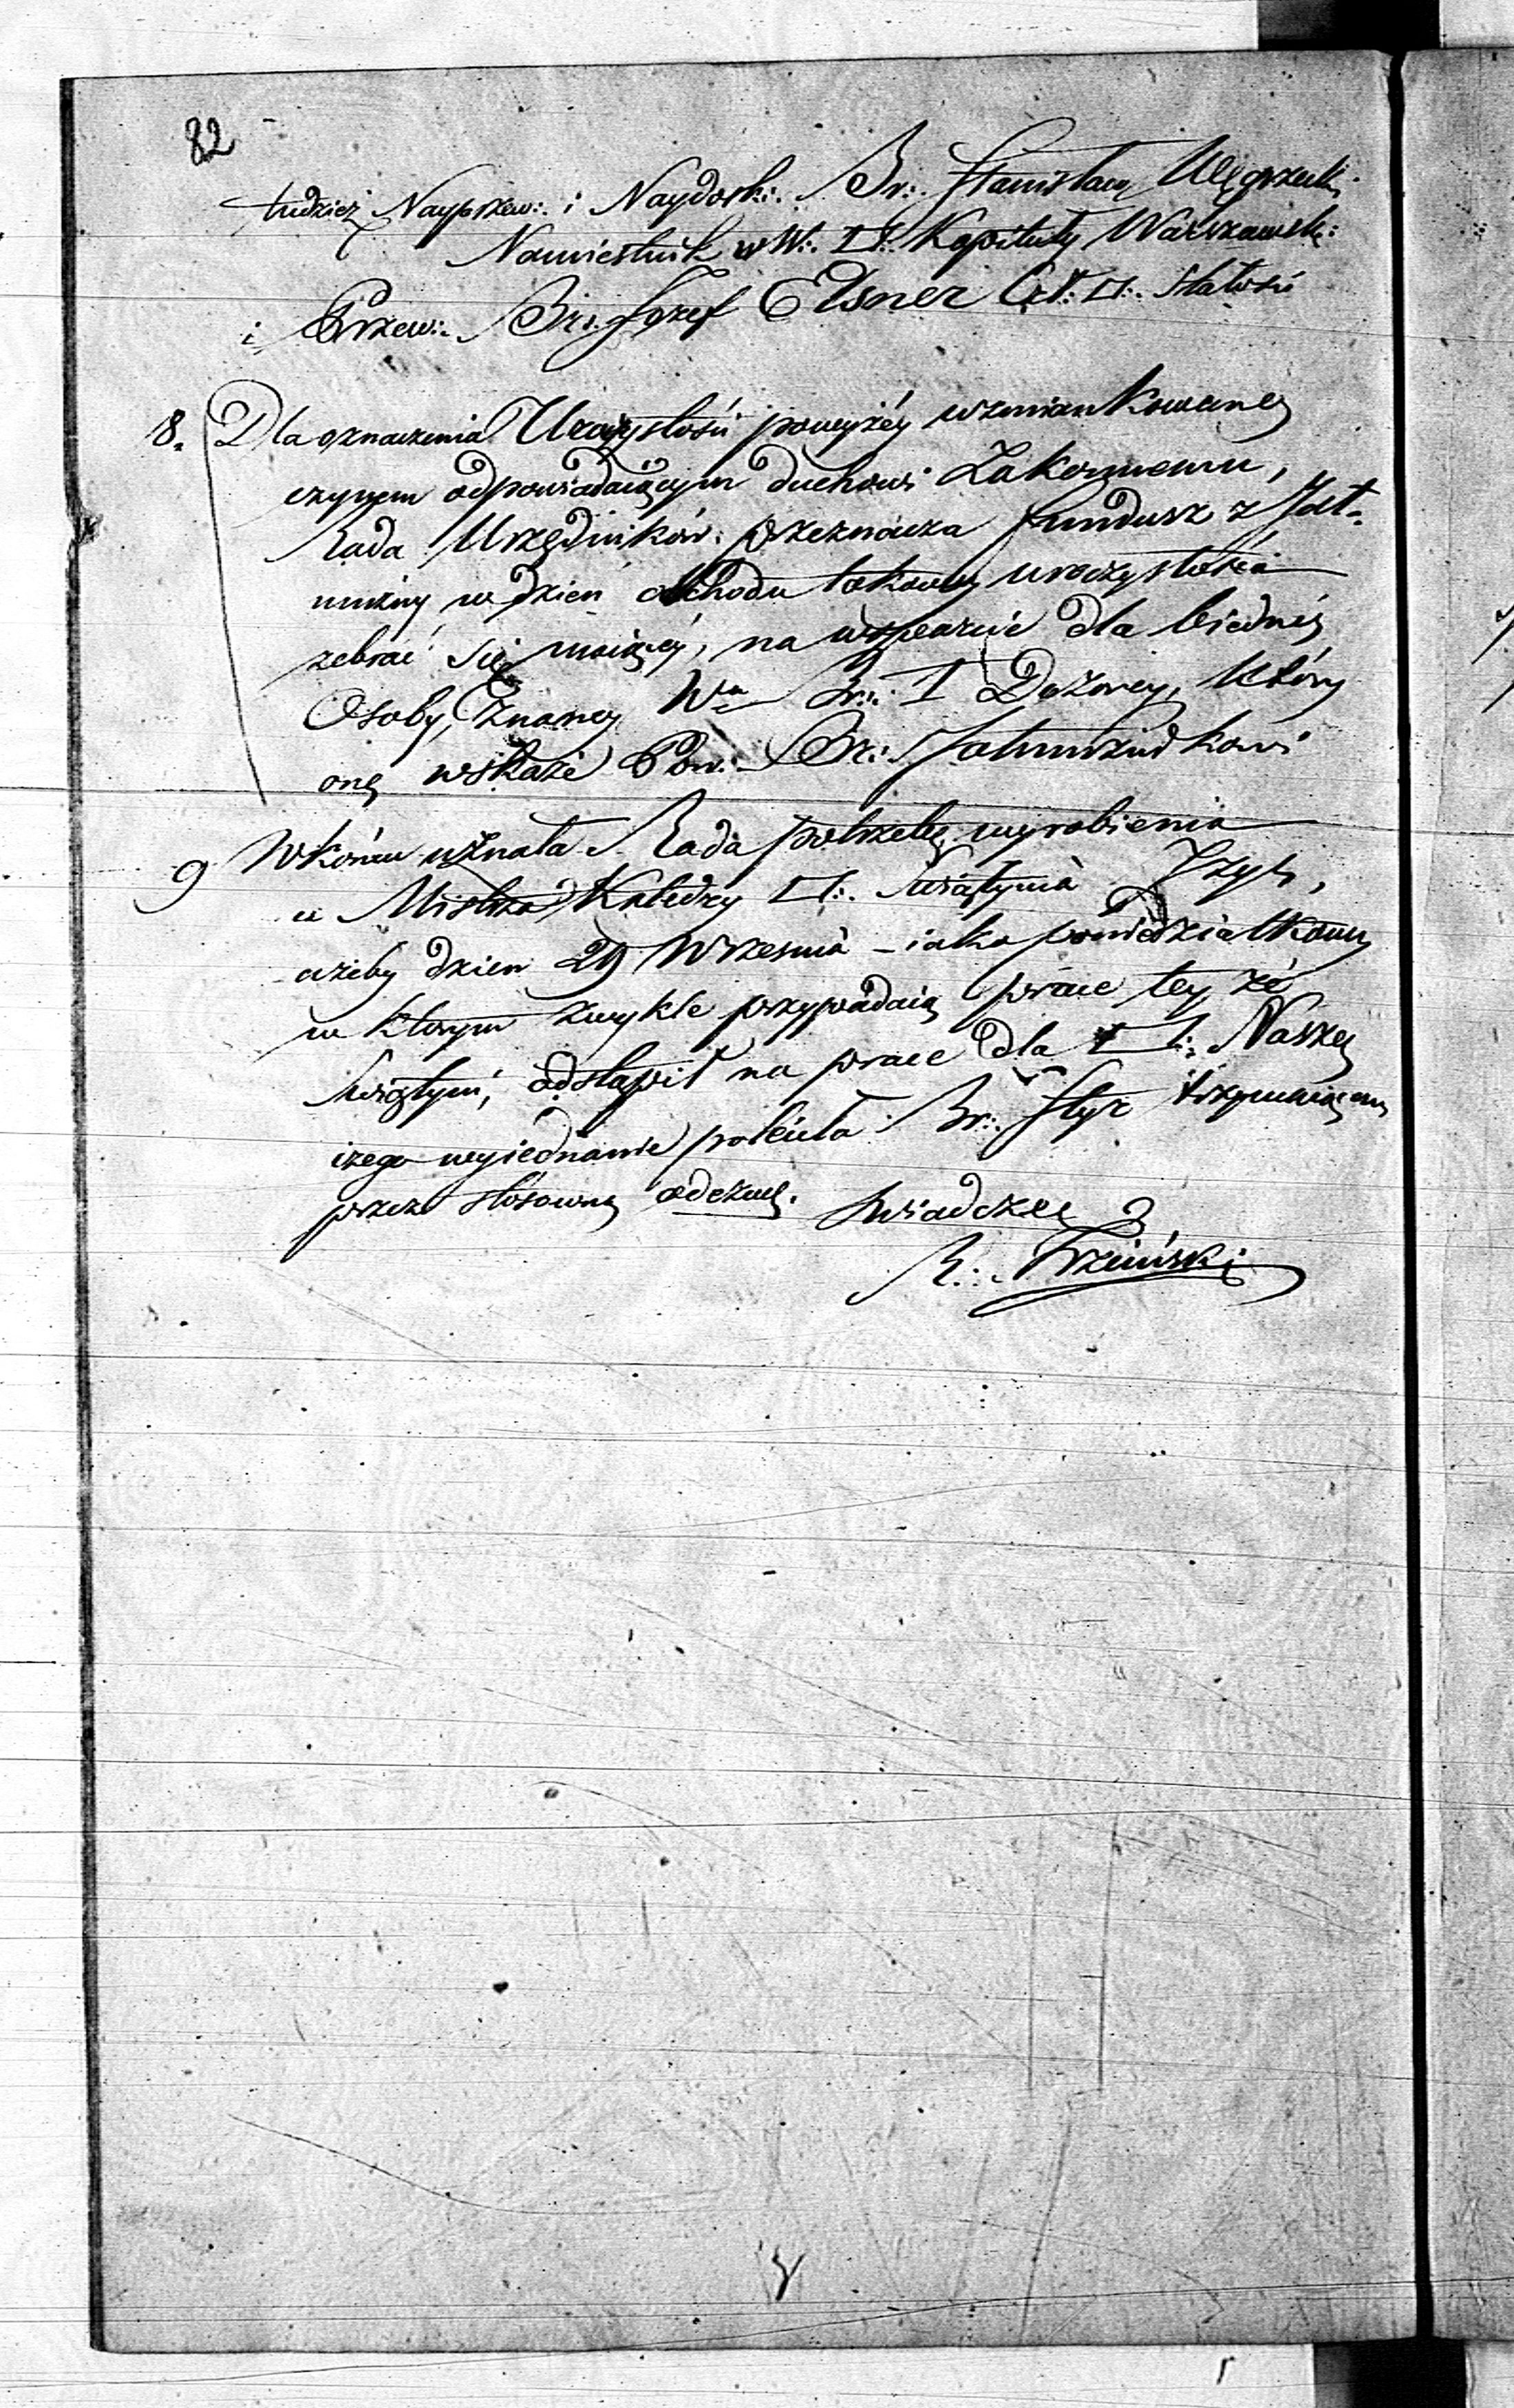 82
tudzież Nayprzew∴ i Naydosk∴ Br∴ Stanisław Węgrzecki
Namiestnik w W∴ □∴ Kapituły Warszawsk:
i Przew∴ Br∴ Jozef Elsner □∴ Stałości
8. Dla oznaczenia Uroczystości powyżéy wzmiankowaney
czynem odpowiadaiącym duchowi Zakonnemu,
Rada Urzędników przeznacza fundusz z Jał-
mużny w dzień obchodu takowey uroczystości
zebrać się maiącéy, na wsparcie dla biednéy
Osoby, Znaney Br∴ I Dozorcy, który
onę wskaże Pow∴ Br∴ Jałmużnikowi
9 W końcu uznała Rada potrzebę wyrobienia
u Mistrza Katedry □∴ Swiątynia Izys,
ażeby dzien 29 Wrzesnia - iako poniedziałkowy
w ktorym zwykle przypadaią prace tey że
Swiątyni, odstąpił na prace dla □∴ Naszey
czego wyiednanie poleciła Br∴
przez stosowną odezwę. Swiadczę
R∴ Trzciński